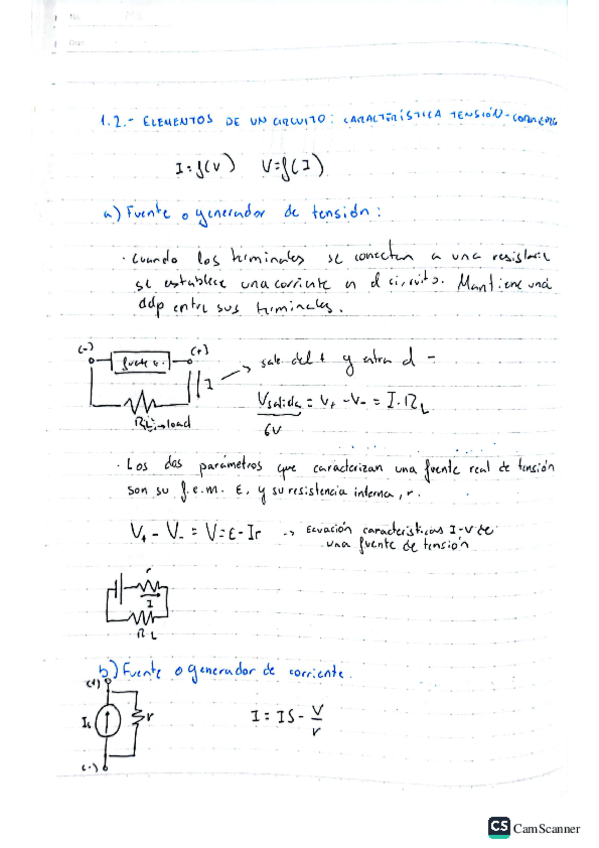 No.
Date
1.2.- ELEMENTOS DE UN CIRCUITO: CARACTERÍSTICA TENSIÓN-CORRIENTE
I=f(V) V=f(I)
a) Fuente o generador de tensión:
· Cuando los terminales se conectan a una resistencia
se establece una corriente en el circuito. Mantiene una
ddp entre sus terminales.
(-) fuente (+)
I → sale del + y entra al -
RL: → load
Vsalida = V+ - V- = I·RL
6V
· Los dos parámetros que caracterizan una fuente real de tensión
son su f.e.m. ε, y su resistencia interna, r.
V+ - V- = V = ε - Ir → Ecuación características I-V de
una fuente de tensión
r
I
RL
b) Fuente o generador de corriente.
(+)
Is r
I = IS - V/r
(-)
CS CamScanner